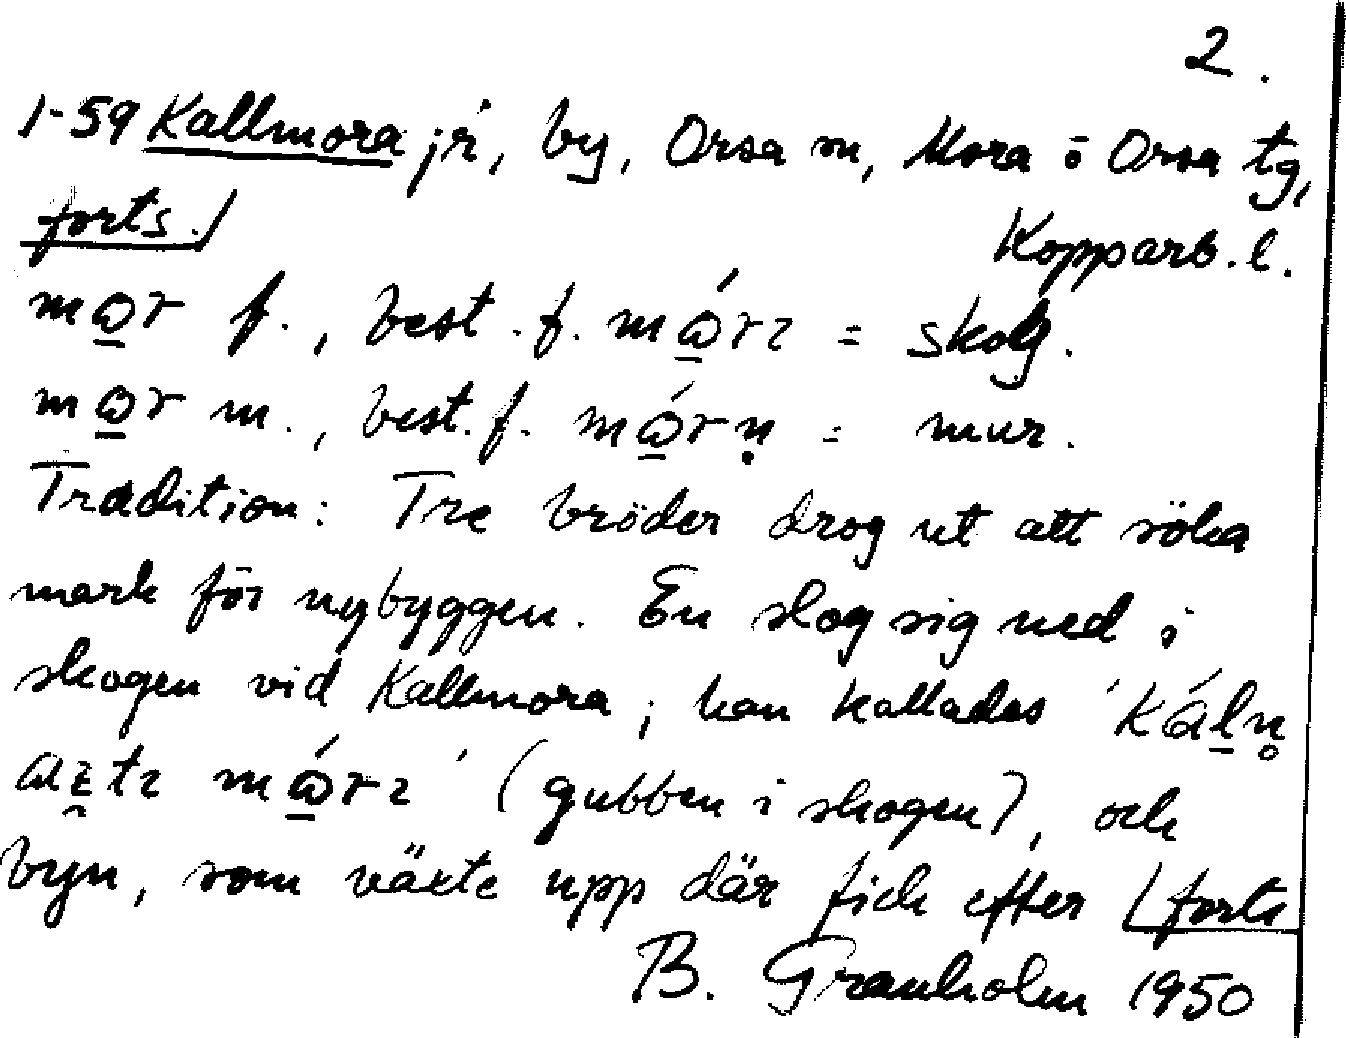 2.
1-59 Kallmora jr, by, Orsa sn, Mora o Orsa tg,
forts.
Kopparb. l.
mo̲r f., best. f. mó̲rɿ = skog.
mo̲r m., best. f. mó̲rṇ = mur.
Tradition: Tre bröder drog ut att söka
mark för nybyggen. En slog sig ned i
skogen vid Kallmora; han kallades 'kál̲n̥
mó̲rɿ' (gubben i skogen), och
byn, som växte upp där fick efter forts
B. Granholm 1950